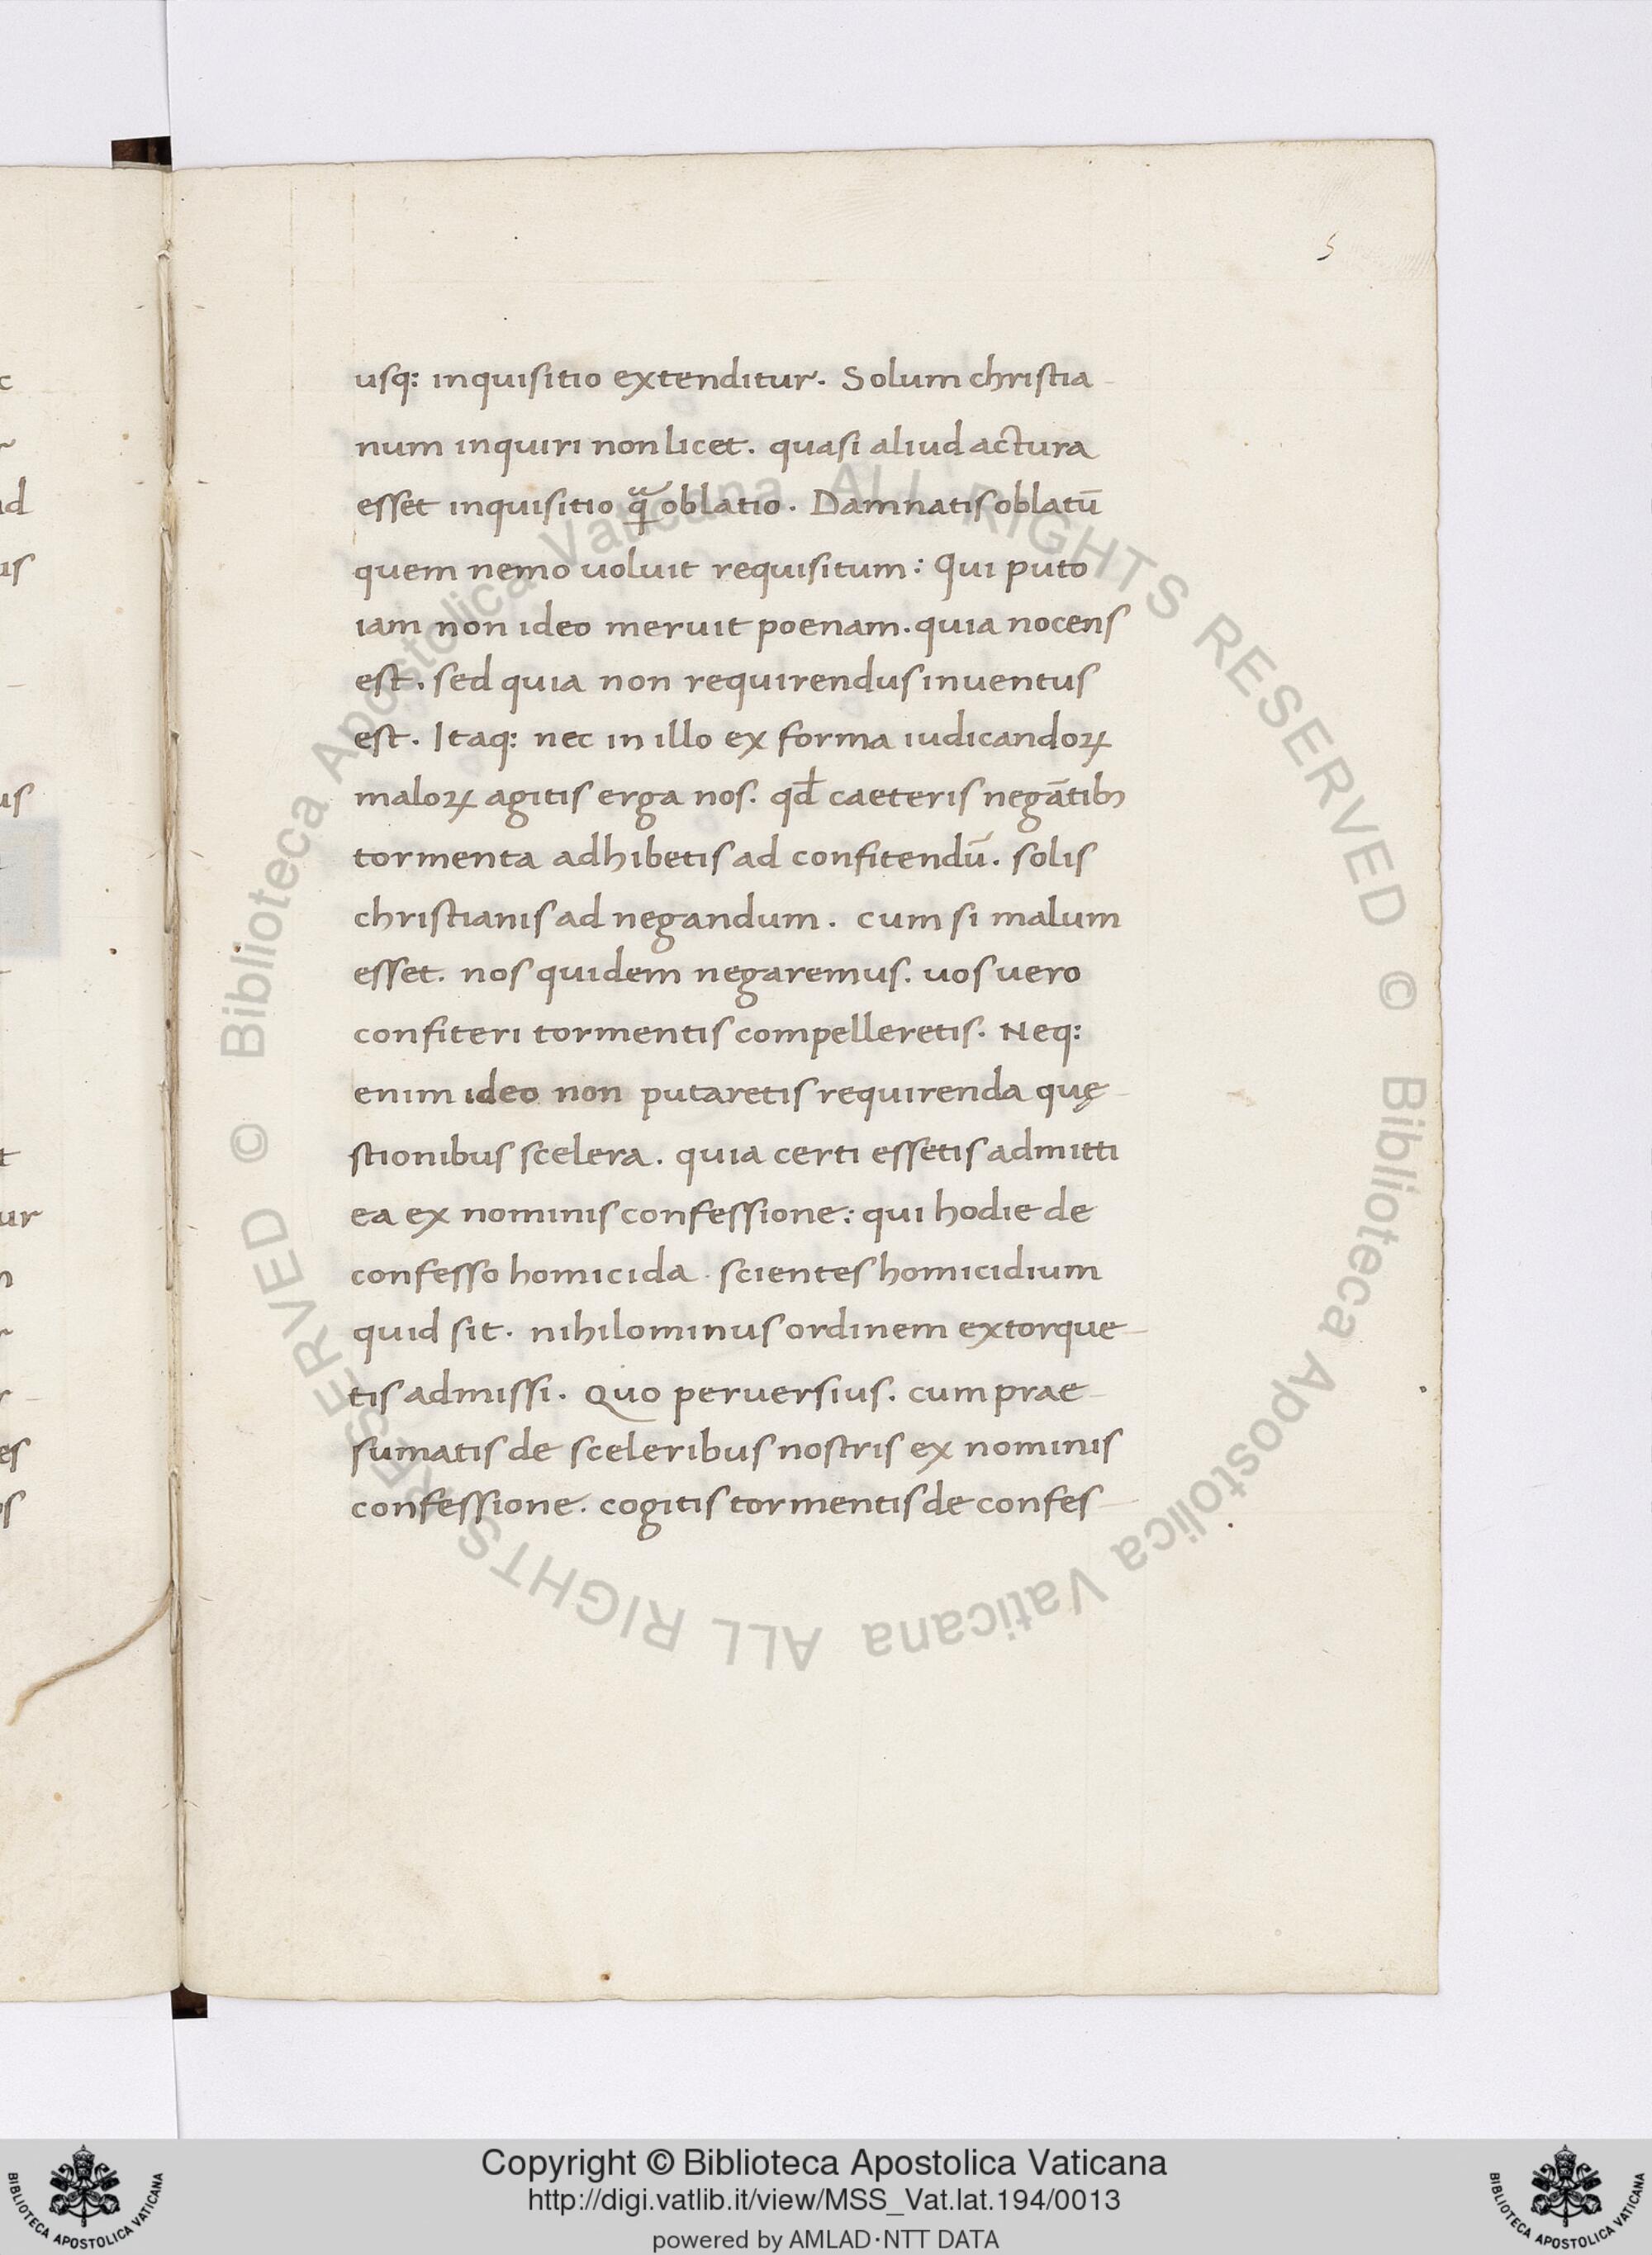 5
usq: inquisitio extenditur. Solum christia-
num inquiri non licet. quasi aliud actura
esset inquisitio qᷓ oblatio. Damnatis oblatū
quem nemo uoluit requisitum: Qui puto
iam non ideo meruit poenam. quia nocens
est. sed quia non requirendus inuentus
est. Itaq: nec in illo ex forma iudicandoꝝ
maloꝝ agitis erga nos. qd̄ caeteris negātibꝫ
tormenta adhibetis ad confitendū. solis
christianis ad negandum. cum si malum
esset. nos quidem negaremus. uos uero
confiteri tormentis compelleretis. Neq:
enim ideo non putaretis requirenda quę-
stionibus scelera. quia certi essetis admitti
ea ex nominis confessione: qui hodie de
confesso homicida. scientes homicidium
quid sit. nihilominus ordinem extorque-
tis admissi. Quo peruersius. cum prae-
sumatis de sceleribus nostris ex nominis
confessione. cogitis tormentis de confes-
© Biblioteca Apostolica Vaticana ALL RIGHTS RESERVED © Biblioteca Apostolica Vaticana ALL RIGHTS RESERVED
Copyright © Biblioteca Apostolica Vaticana
http://digi.vatlib.it/view/MSS_Vat.lat.194/0013
powered by AMLAD·NTT DATA
BIBLIOTECA APOSTOLICA VATICANA
BIBLIOTECA APOSTOLICA VATICANA